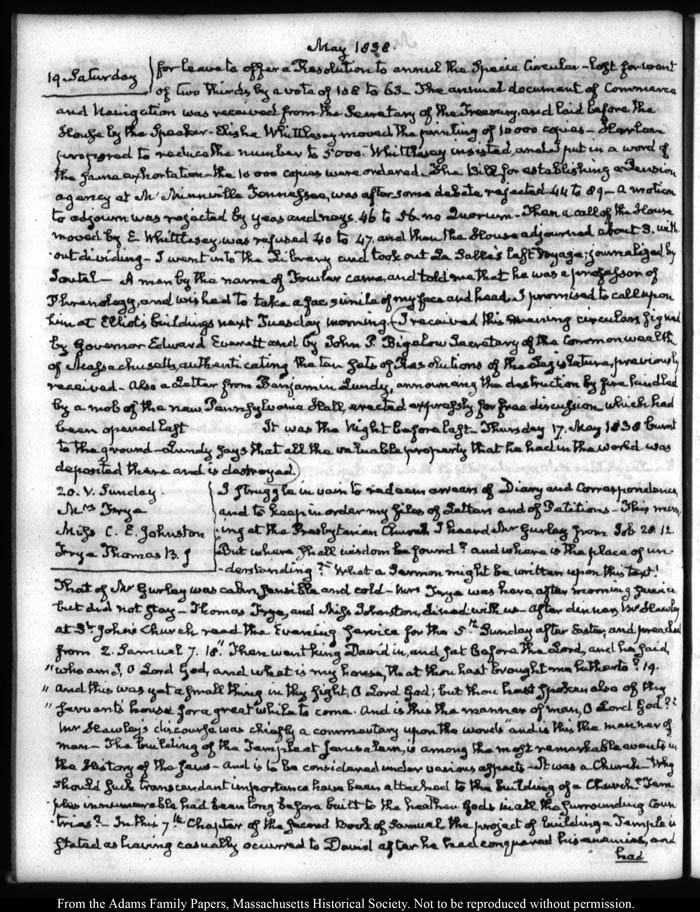 May 1838.
19. Saturday
for leave to offer a Resolution to annul the Specie Circular - lost for want
of two thirds, by a vote of 108 to 63 - The annual document of Commerce
and Navigation was received from the Secretary of the Treasury, and laid before the
House by the Speaker - Elisha Whittlesey moved the printing of 10000 copies - Harlan
proposed to reduce the number to 5000. Whittlesey insisted, and I put in a word of
the same exhortation - the 10 000 copies were ordered. The Bill for establishing a Pension
agency at Mc Minnville Tennessee, was after some debate, rejected 44 to 89 - A motion
to adjourn was rejected by yeas and nays. 46 to 56. no Quorum - Then a call of the House
moved by E Whittlesey, was refused 40 to 47. and then the House adjourned about 3. with-
out dividing - I went into the Library and took out La Salle's last Voyage; journalized by
Joutel - A man by the name of Fowler came, and told me that he was a professor of
Phrenology, and wished to take a fac simile of my face and head. I promised to call upon
him at Elliot's buildings next Tuesday morning - I received this evening circulars signed
by Governor Edward Everett and by John P. Bigelow Secretary of the Commonwealth
of Massachusetts, authenticating the ten sets of Resolutions of the Legislature, previously
received - Also a Letter from Benjamin Lundy, announcing the destruction by fire kindled
by a mob of the new Pennsylvania Hall, erected expressly for free discussion which had
been opened last It was the Night before last. Thursday 17. May 1838 burnt
to the ground - Lundy says that all the valuable property that he had in the world was
deposited there and is destroyed
20. V. Sunday.
Mrs Frye
Miss C. E. Johnston
Frye Thomas B. J
I struggle in vain to redeem arrears of Diary and Correspondence,
and to keep in order my files of Letters and of Petitions - This morn-
ing at the Presbyterian Church I heard Mr Gurley from Job 28. 12.
But where shall wisdom be found? and where is the place of un-
derstanding?" What a Sermon might be written upon this text!
That of Mr Gurley was calm, sensible and cold - Mrs Frye was here, after morning service
but did not stay - Thomas Frye, and Miss Johnston, dined with us - After dinner, Mr Hawley
at St John's Church read the Evening service for the 5th Sunday after Easter, and preached
from 2. Samuel 7. 18. "Then went King David in, and sat before the Lord, and he said,
"who am I, O Lord God, and what is my house, that thou hast brought me hitherto? 19.
" And this was yet a small thing in thy sight, O Lord God; but thou hast spoken also of thy
" servants house for a great while to come. And is this the manner of man, O Lord God?"
Mr Hawley's discourse was chiefly a commentary upon the words "and is this the manner of
man - The building of the Temple at Jerusalem, is among the most remarkable events in
the History of the Jews - and is to be considered under various aspects - It was a Church - Why
should such transcendant importance have been attached to the building of a Church? Tem-
ples innumerable had been long before built to the heathen Gods in all the surrounding Coun-
tries? - In this 7th Chapter of the second Book of Samuel the project of building a Temple is
stated as having casually occurred to David after he had conquered his enemies, and
had
From the Adams Family Papers, Massachusetts Historical Society. Not to be reproduced without permission.